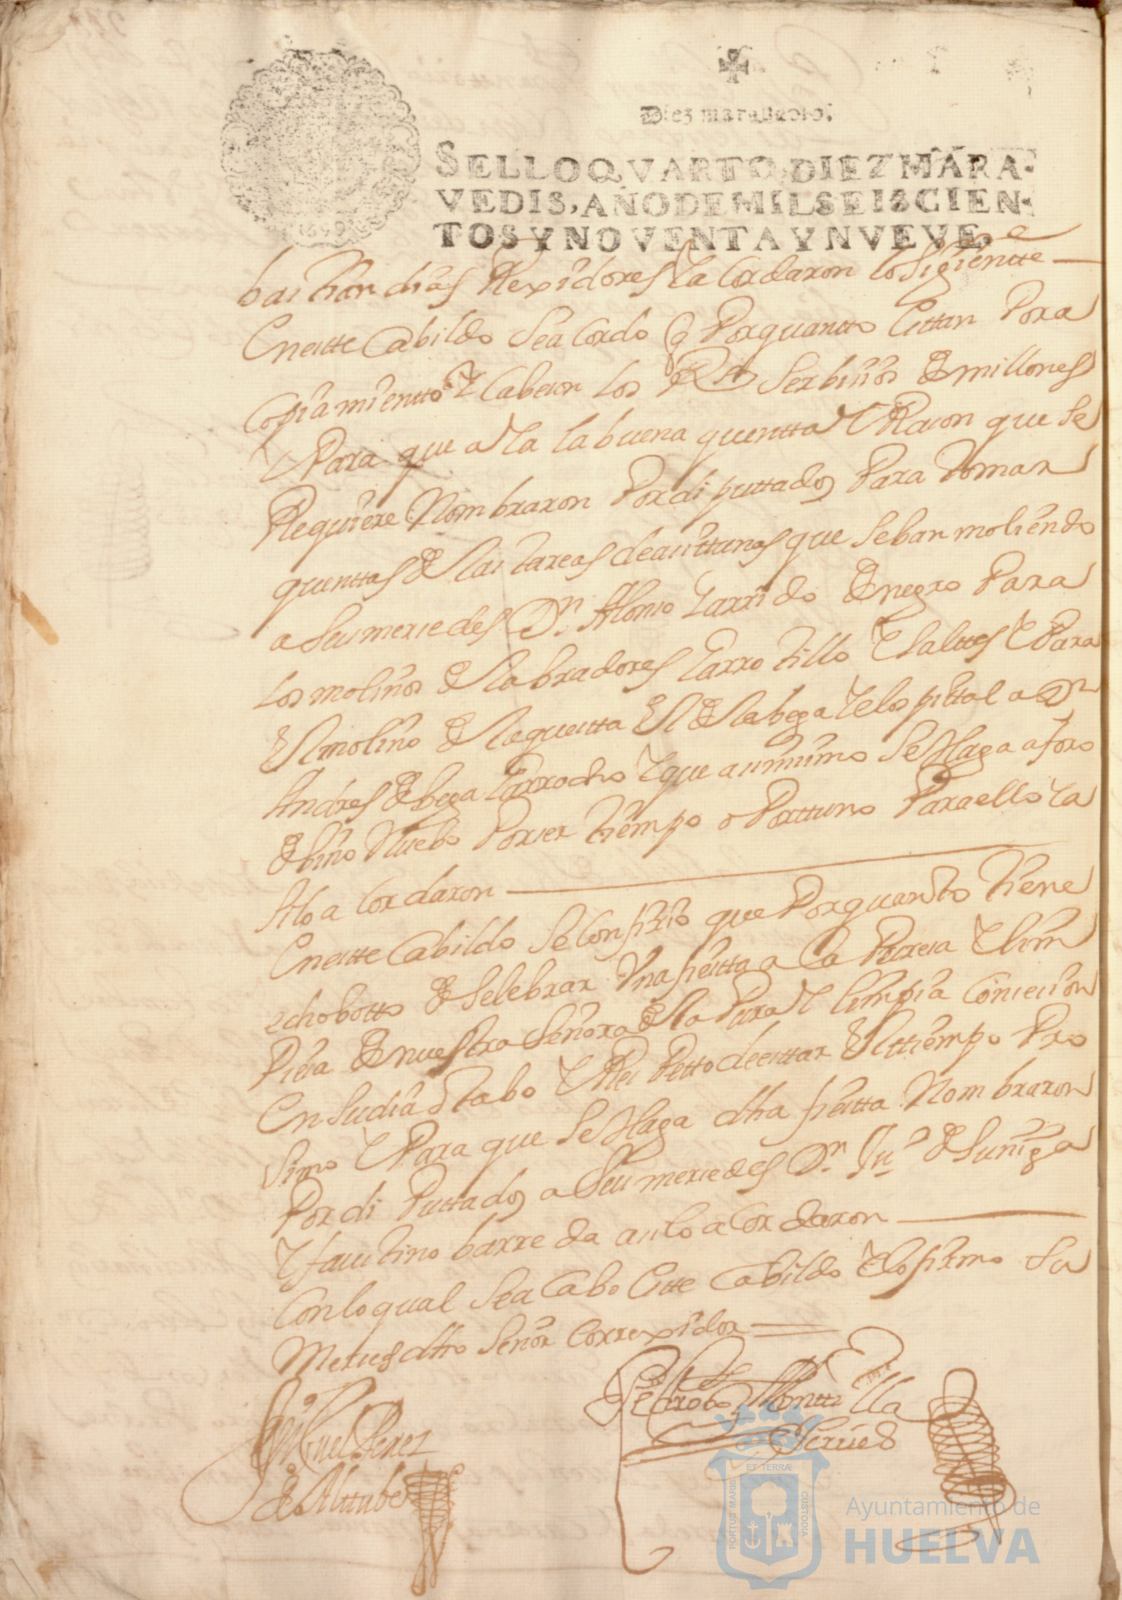 Diez marauedis:
SELLO QVARTO, DIEZ MARA-
VEDIS, AÑO DE MIL SEISCIEN-
TOS Y NOVENTA Y NVEVE.
1699
bastian dias Rexidores Y acordaron lo Siguientte
En estte Cabildo Se acordo q Porquantto esttan Por a
Copiamientto Y Cabeson los Rs Serbiçios de millones
Y Para que aYa la buena quentta Y Rason que se
Requiere Nombraron Por diputtados Para tomar
quenttas de las tareas de asittunas que se ban moliendo
a Sus mersedes Dn Alonso Garrido de negro Para
los molinos de labradores Garrotillo Y Saltes Y Para
el molino de la questta el de la bega Y el ospittal a Dn
Andres de bega Garrocho Y que asimismo Se Haga aforo
de bino Nuebo Por ser tiempo oPorttuno Para ello Ya
Alo acordaron
En estte Cabildo Se Confirio que Porquanto tiene
echo botto de Selebrar Una fiestta a la Puresa Y lim
Piesa de nuestra Señora de la Pura Y limpia Consecion
En su dia Y tabo Y Respetto de esttar el ttiempo Pro
simo Y Para que Se Haga dha fiestta Nombraron
Por diPuttados a Sus mersedes Dn Juo de Suñiga
Y faustino barreda asi lo acordaron
Con lo qual Se acabo estte Cabildo Y lo firmo Su
Mersed dho Señor Correxidor
Pedro de Monttilla
Miguel Perez
de Alttube
PORTUS MARIS ET TERRÆ CUSTODIA
Ayuntamiento de
HUELVA